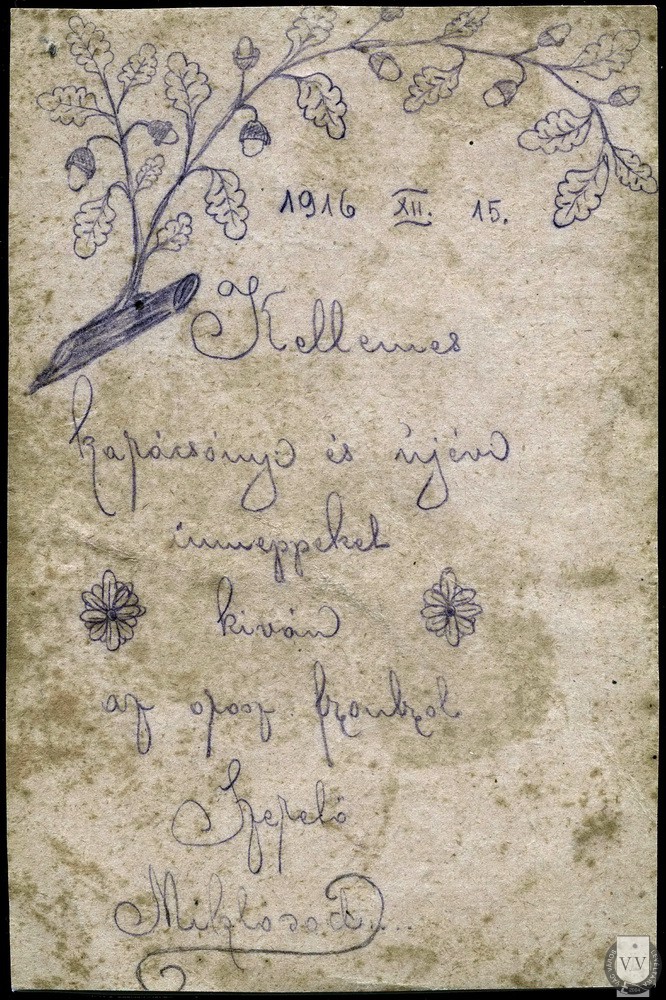 1916 XII. 15.
Kellemes
karácsonyi és újévi
ünneppeket
kiván
az orosz frontrol
Szerető
Miklosod.
VV